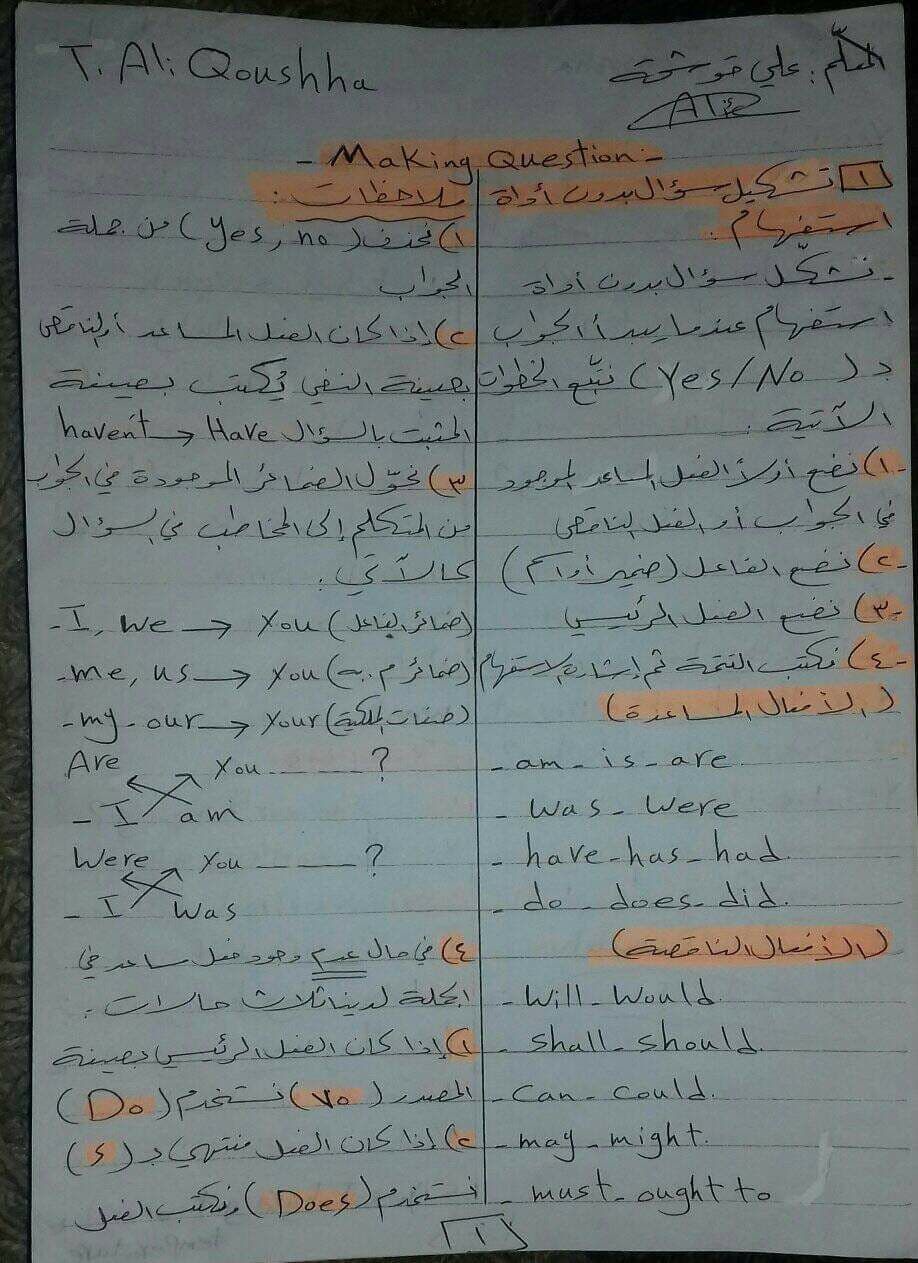 T. Ali Qoushha
المعلّم: علي قوشحة
- Making Question -
١ تشكيل سؤال بدون أداة
استفهام:
- نشكّل سؤال بدون أداة
استفهام عندما يبدأ الجواب
بـ (Yes/No) نتبّع الخطوات
الآتية:
١) نضع أولاً الفعل المساعد الموجود
في الجواب أو الفعل الناقص
٢) نضع الفاعل (ضمير أو اسم)
٣) نضع الفعل الرئيسي
٤) نكتب التتمة ثم إشارة الاستفهام
(الأفعال المساعدة)
- am - is - are
- was - were
- have - has - had.
- do - does - did.
(الأفعال الناقصة)
- will - would.
- shall - should.
- can - could.
- may - might.
- must - ought to
ملاحظات:
١) نحذف (yes, no) من جملة
الجواب
٢) إذا كان الفعل المساعد أو الناقص
بصيغة النفي يُكتب بصيغة
المثبت بالسؤال haven't → Have
٣) نحوّل الضمائر الموجودة في الجواب
من المتكلم إلى المخاطب في السؤال
كالآتي:
- I, we → You (ضمائر الفاعل)
- me, us → You (ضمائر م. به)
- my - our → Your (صفات الملكية)
Are You ------- ?
- I am
Were You ------- ?
- I was
٤) في حال عدم وجود فعل مساعد في
الجملة لدينا ثلاث حالات:
١) إذا كان الفعل الرئيسي بصيغة
المصدر (Vo) نستخدم (Do)
٢) إذا كان الفعل منتهي بـ (s)
نستخدم (Does) ونكتب الفعل
١